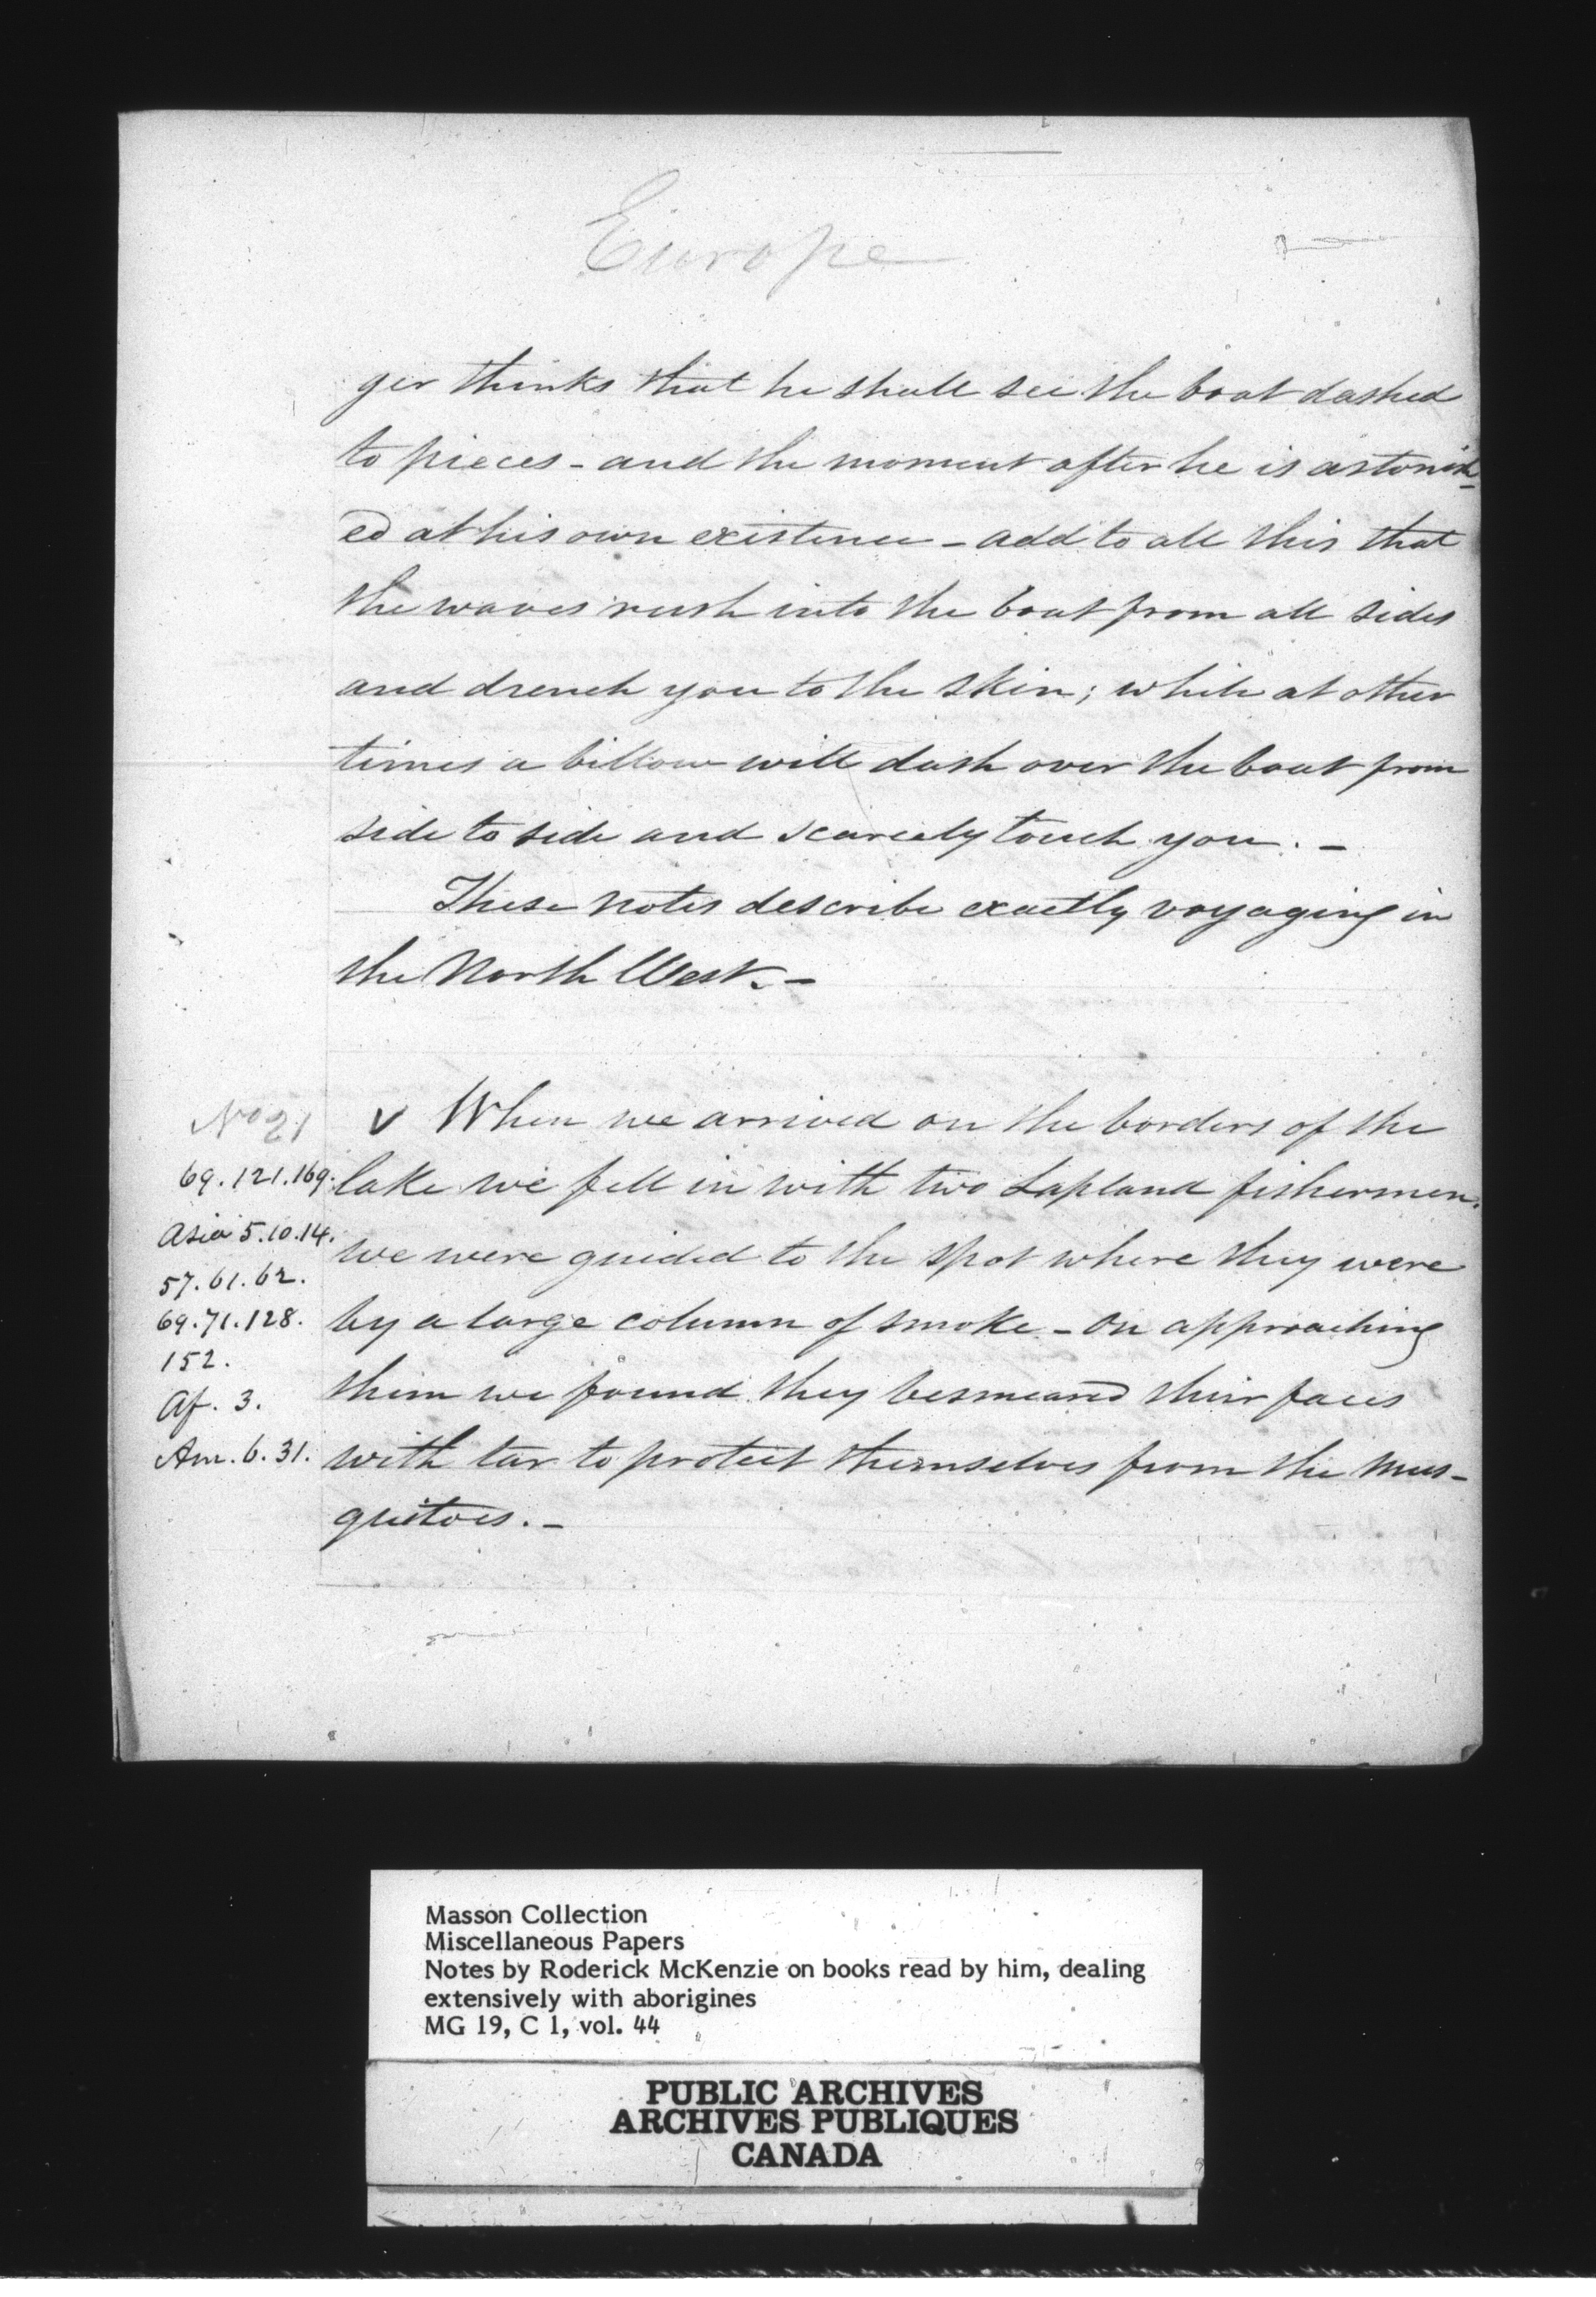 Europe
ger thinks that he shall see the boat dashed
to pieces - and the moment after he is astonish-
ed at his own existence - add to all this that
the waves rush into the boat from all sides
and drench you to the skin; while at other
times a billow will dash over the boat from
side to side and scarcely touch you. -
These notes describe exactly voyaging in
the North West. -
No 21
v When we arrived on the borders of the
69.121.169.
lake we fell in with two Lapland fishermen.
Asia 5.10.14.
we were guided to the spot where they were
57.61.62.
69.71.128.
by a large column of smoke - On approaching
152.
them we found they besmeared their faces
Af. 3.
Am. 6. 31.
with tar to protect themselves from the mus-
quitoes. -
Masson Collection
Miscellaneous Papers
Notes by Roderick McKenzie on books read by him, dealing
extensively with aborigines
MG 19, C 1, vol. 44
PUBLIC ARCHIVES
ARCHIVES PUBLIQUES
CANADA